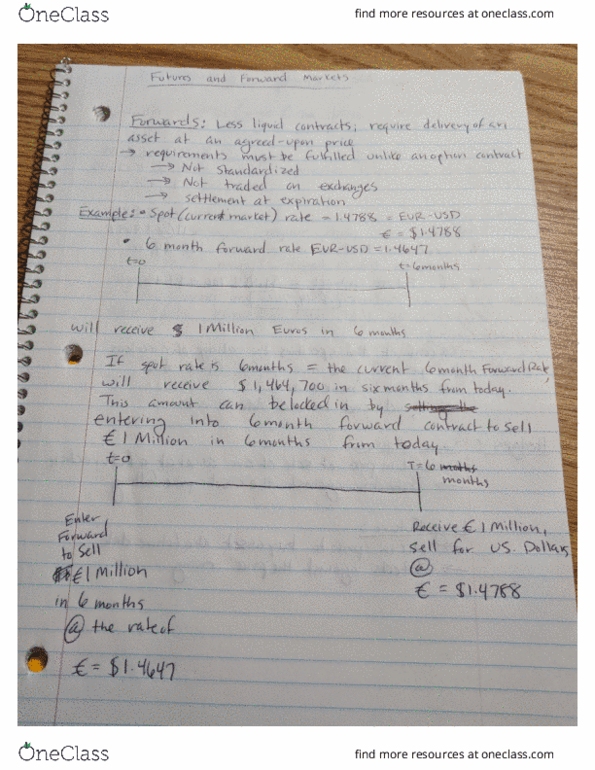 OneClass
find more resources at oneclass.com
Futures and Forward Markets
Forwards: Less liquid contracts; require delivery of an
asset at an agreed-upon price
→ requirements must be fulfilled unlike an option contract
→ Not standardized
→ Not traded on exchanges
→ settlement at expiration
Example: • Spot (current market) rate = 1.4788 = EUR-USD
€ = $1.4788
• 6 month forward rate EUR-USD = 1.4647
t=0
t=6months
will receive $ 1 Million Euros in 6 months
If spot rate is 6months = the current 6month Forward Rate,
will receive $1,464,700 in six months from today.
This amount can be locked in by
entering into 6 month forward contract to sell
€1 Million in 6 months from today
t=0
T=6 moths
months
Enter
Forward
to sell
€1 Million
in 6 months
@ the rate of
€ = $1.4647
Receive € 1 Million,
sell for US. Dollars
@
€ = $1.4788
OneClass
find more resources at oneclass.com